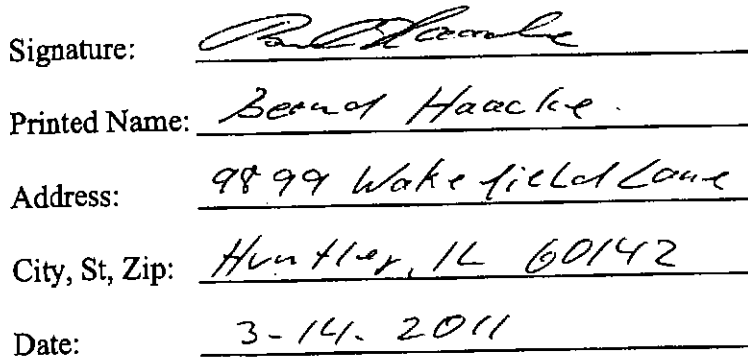 Signature:
Printed Name: Bernd Haacke.
Address: 9899 Wakefield Lane
City, St, Zip: Huntley, IL 60142
Date: 3-14-2011